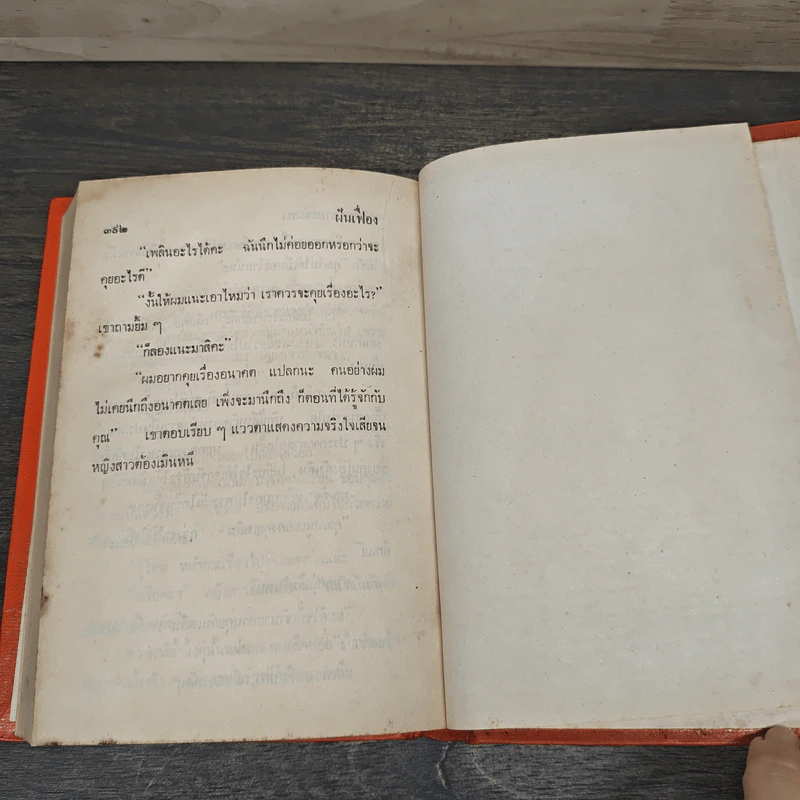 ๓๙๒
ฝันเฟื่อง
“เพลินอะไรได้คะ ฉันนึกไม่ค่อยออกหรอกว่าจะ
คุยอะไรดี”
“งั้นให้ผมแนะเอาไหมว่า เราควรจะคุยเรื่องอะไร?”
เขาถามยิ้ม ๆ
“ก็ลองแนะมาสิคะ”
“ผมอยากคุยเรื่องอนาคต แปลกนะ คนอย่างผม
ไม่เคยนึกถึงอนาคตเลย เพิ่งจะมานึกถึง ก็ตอนที่ได้รู้จักกับ
คุณ” เขาตอบเรียบ ๆ แววตาแสดงความจริงใจเสียจน
หญิงสาวต้องเมินหนี